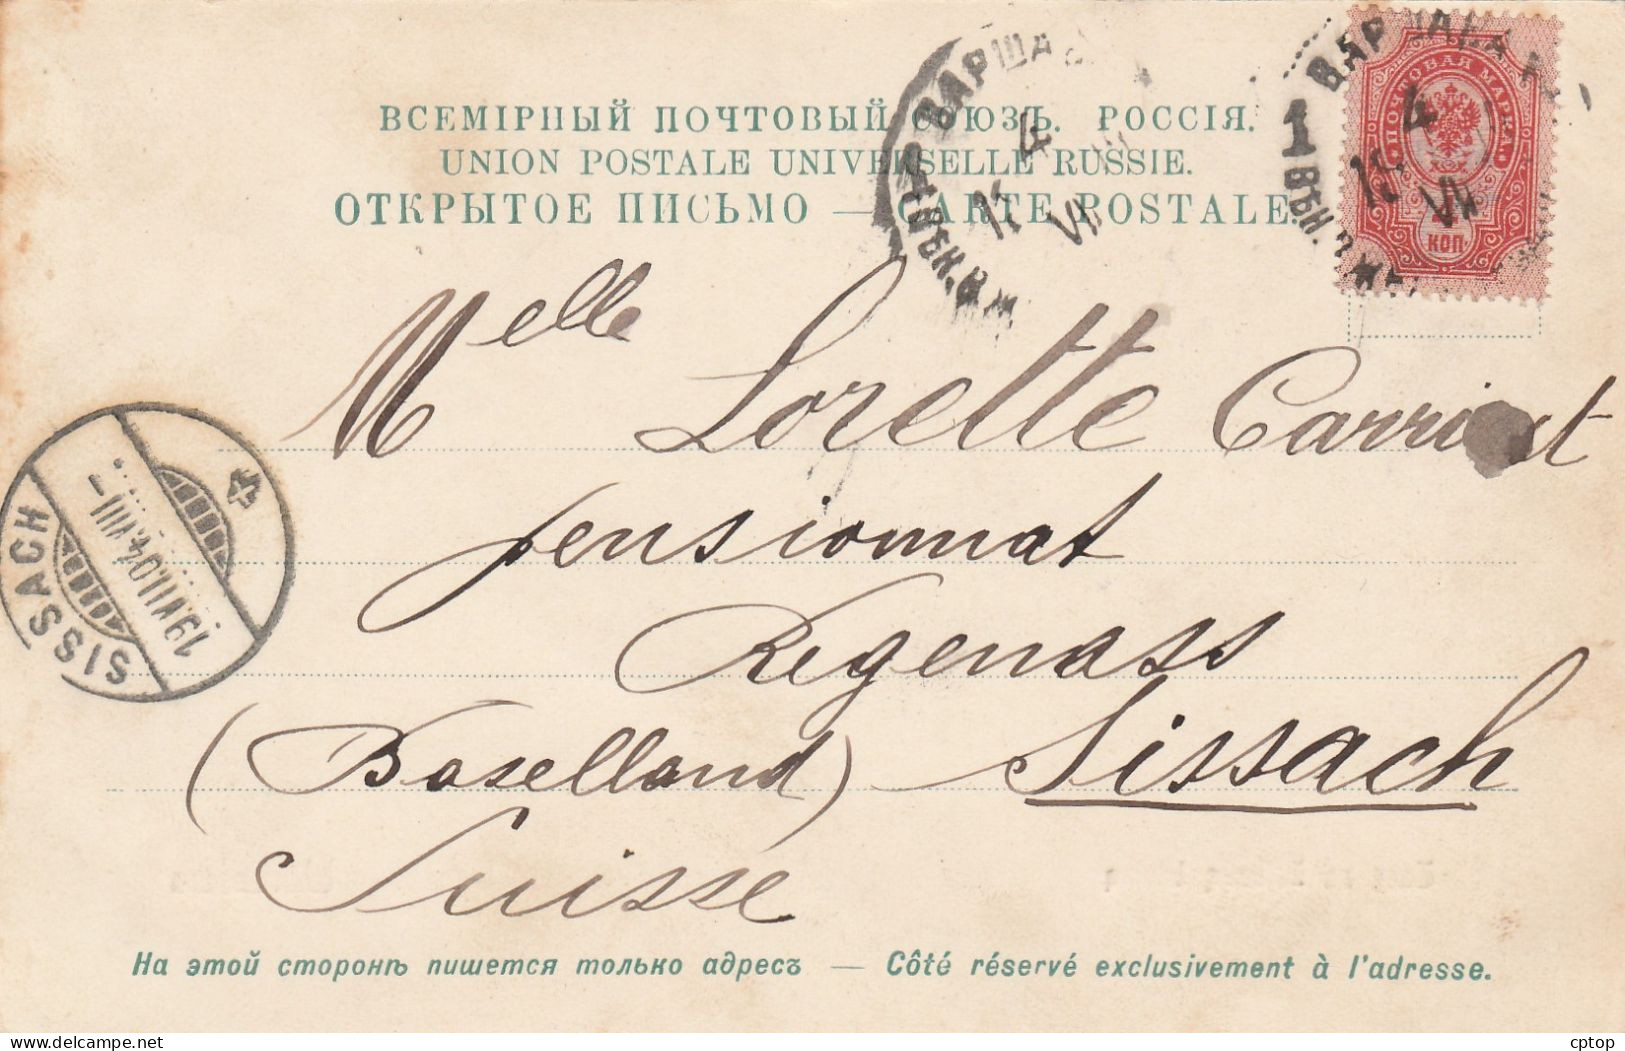 ВСЕМІРНЫЙ ПОЧТОВЫЙ СОЮЗЪ. РОССІЯ.
UNION POSTALE UNIVERSELLE RUSSIE.
ОТКРЫТОЕ ПИСЬМО — CARTE POSTALE.
ВАРШАВА
4
VII
ПОЧТОВАЯ МАРКА
КОП
ВАРШАВА
1
4
VII
Melle Lorette
pensionnat
Regenass
(Baselland) Sissach
Suisse
SISSACH
19.VII.04.VIII–
На этой сторонѣ пишется только адресъ — Côté réservé exclusivement à l'adresse.
cptop